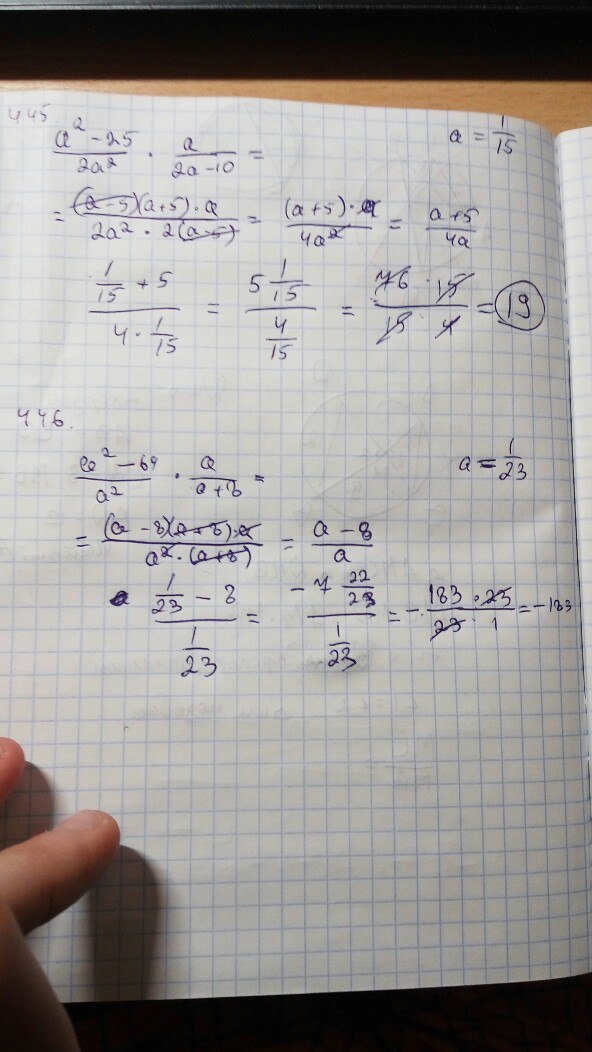 445.
(a² - 25)/(2a²) · a/(2a - 10) =    a = 1/15
= ((a - 5)(a + 5) · a)/(2a² · 2(a - 5)) = ((a + 5) · a)/(4a²) = (a + 5)/(4a)
(1/15 + 5)/(4 · 1/15) = (5 1/15)/(4/15) = (76 · 15)/(15 · 4) = 19
446.
(a² - 64)/(a²) · a/(a + 8) =    a = 1/23
= ((a - 8)(a + 8) · a)/(a² · (a + 8)) = (a - 8)/a
(1/23 - 8)/(1/23) = (-7 22/23)/(1/23) = - (183 · 23)/(23 · 1) = -183